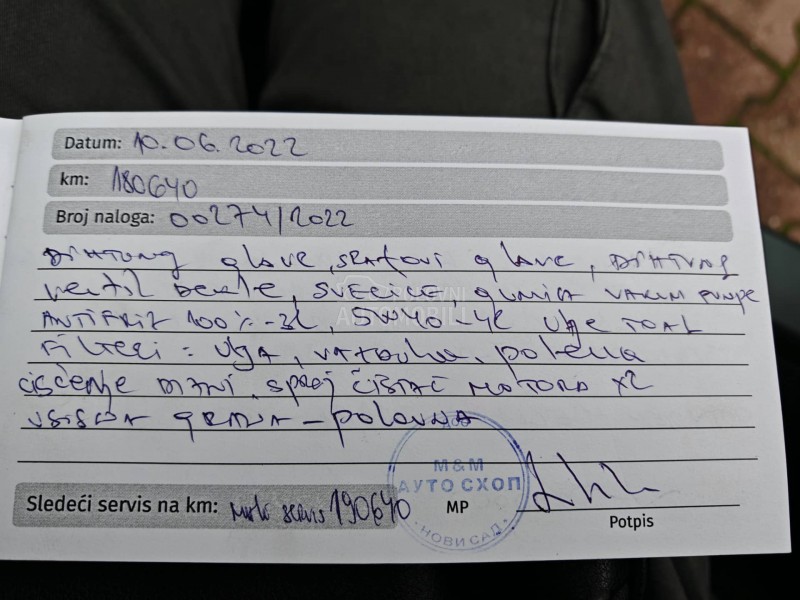 Datum: 10.06.2022
km: 180640
Broj naloga: 00274/2022
DIHTUNG glave, srafovi glave, DIHTUNG
ventil DEKLE, SVEĆICE, gumica vakum pumpe
ANTIFRIZ 100% - 3L, 5W40 - 4L ulje TOTAL
Filteri: ulja, vazduha, polena
čišćenje DIZNI, sprej čistač MOTORA x2
usisna GRANA - polovna
M&M
АУТО СХОП
НОВИ САД
Sledeći servis na km: mali servis 190640
MP
Potpis